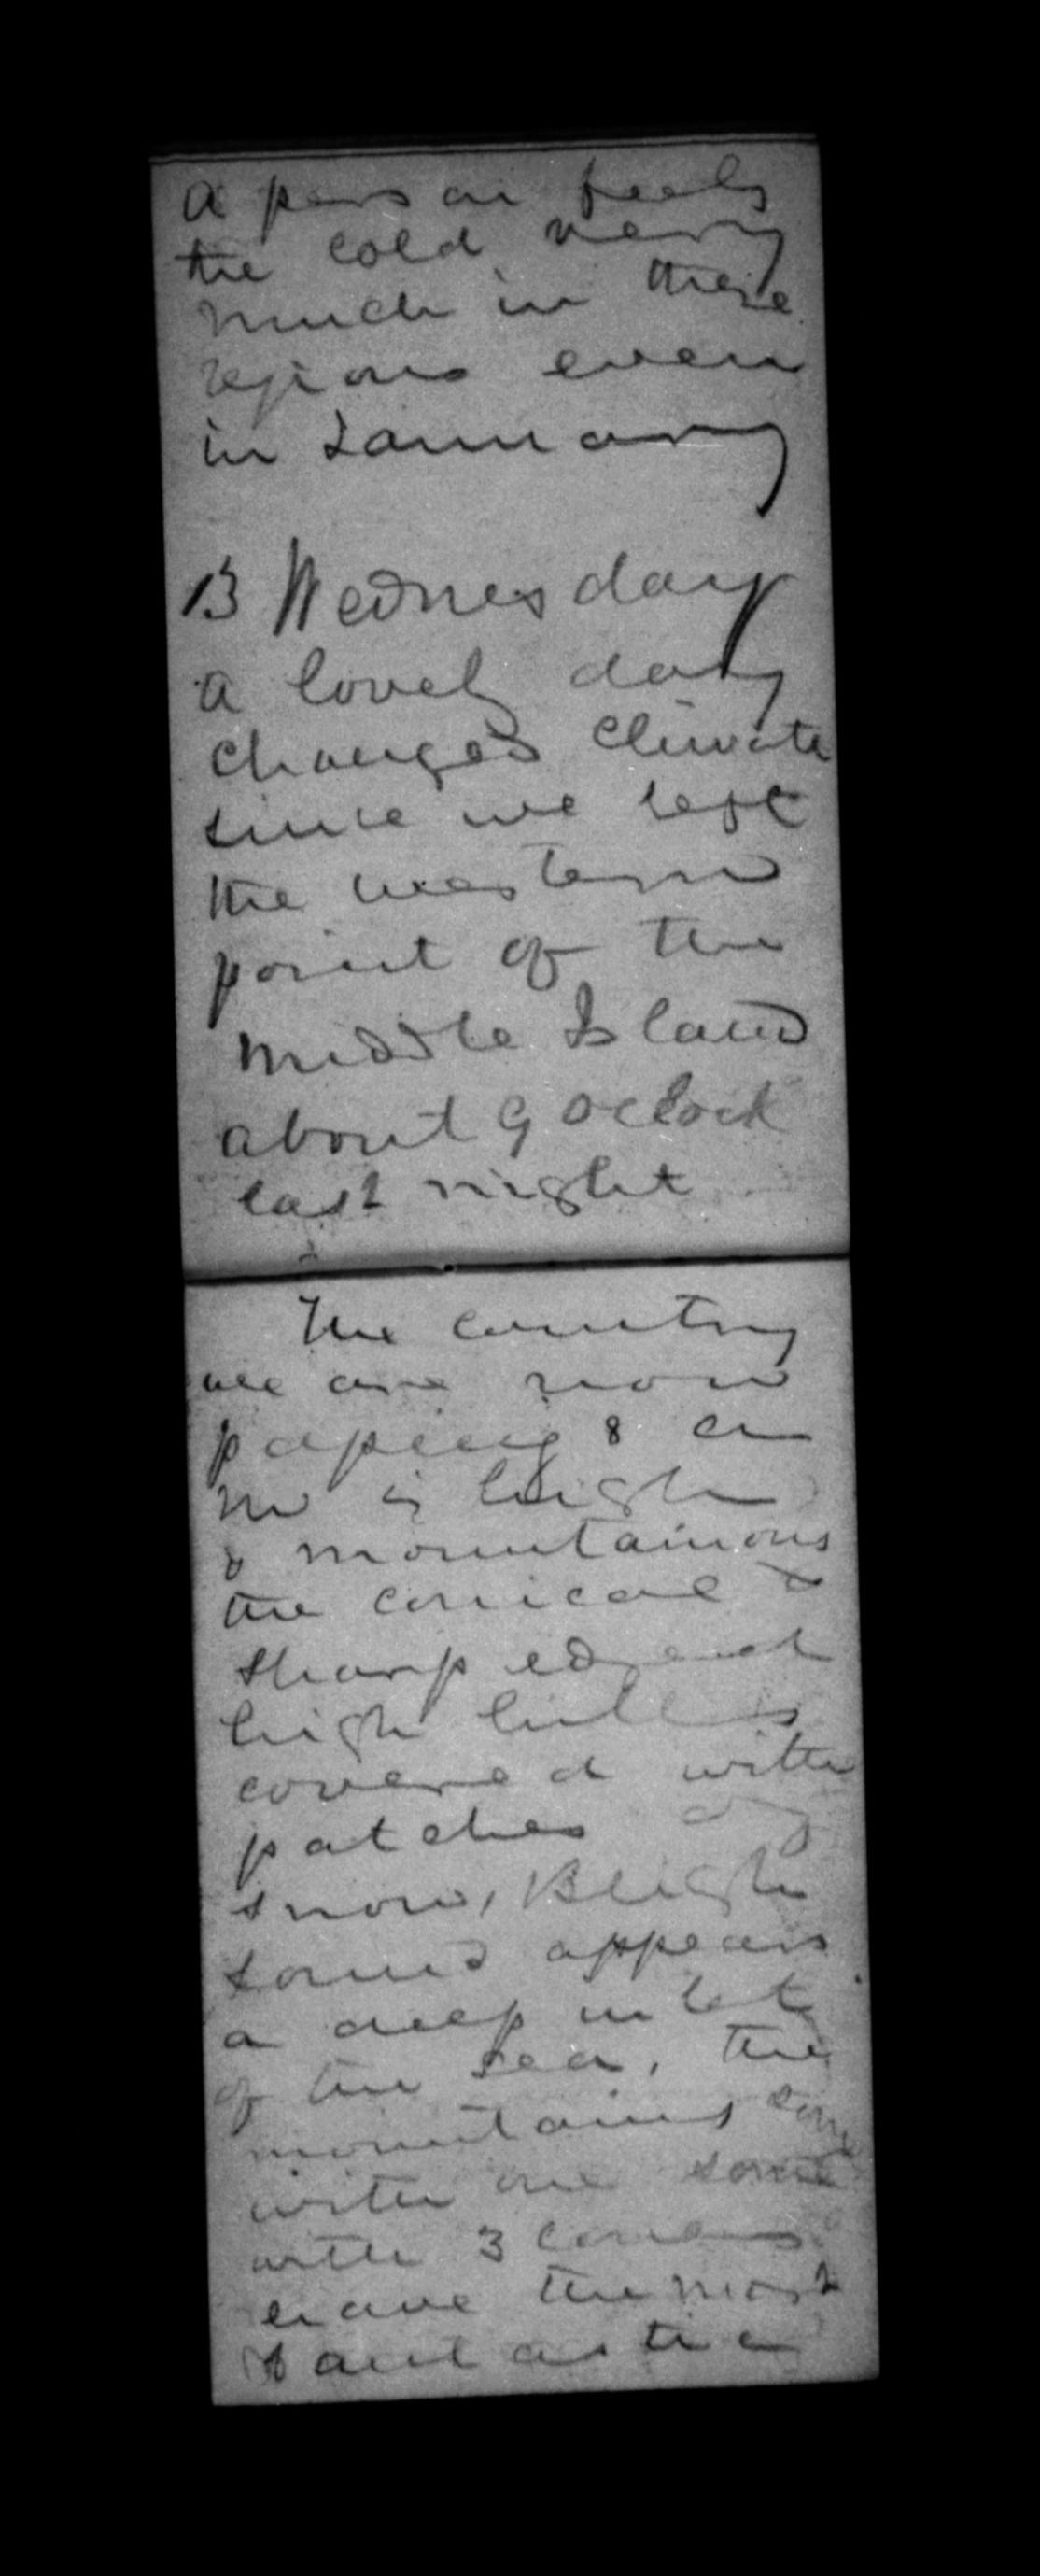 A person feels
the cold very
much in these
regions even
in January
13 Wednesday
a lovely day
changed climate
since we left
the western
point of the
Middle Island
about 9 oclock
last night
The country
we are now
passing 8 a
m is high
& mountainous
the conical &
sharp edged
high hills
covered with
patches of
snow, Bligh
sound appears
a deep inlet
of the sea, the
mountains some
with one some
with 3 cones
have the most
fantastic